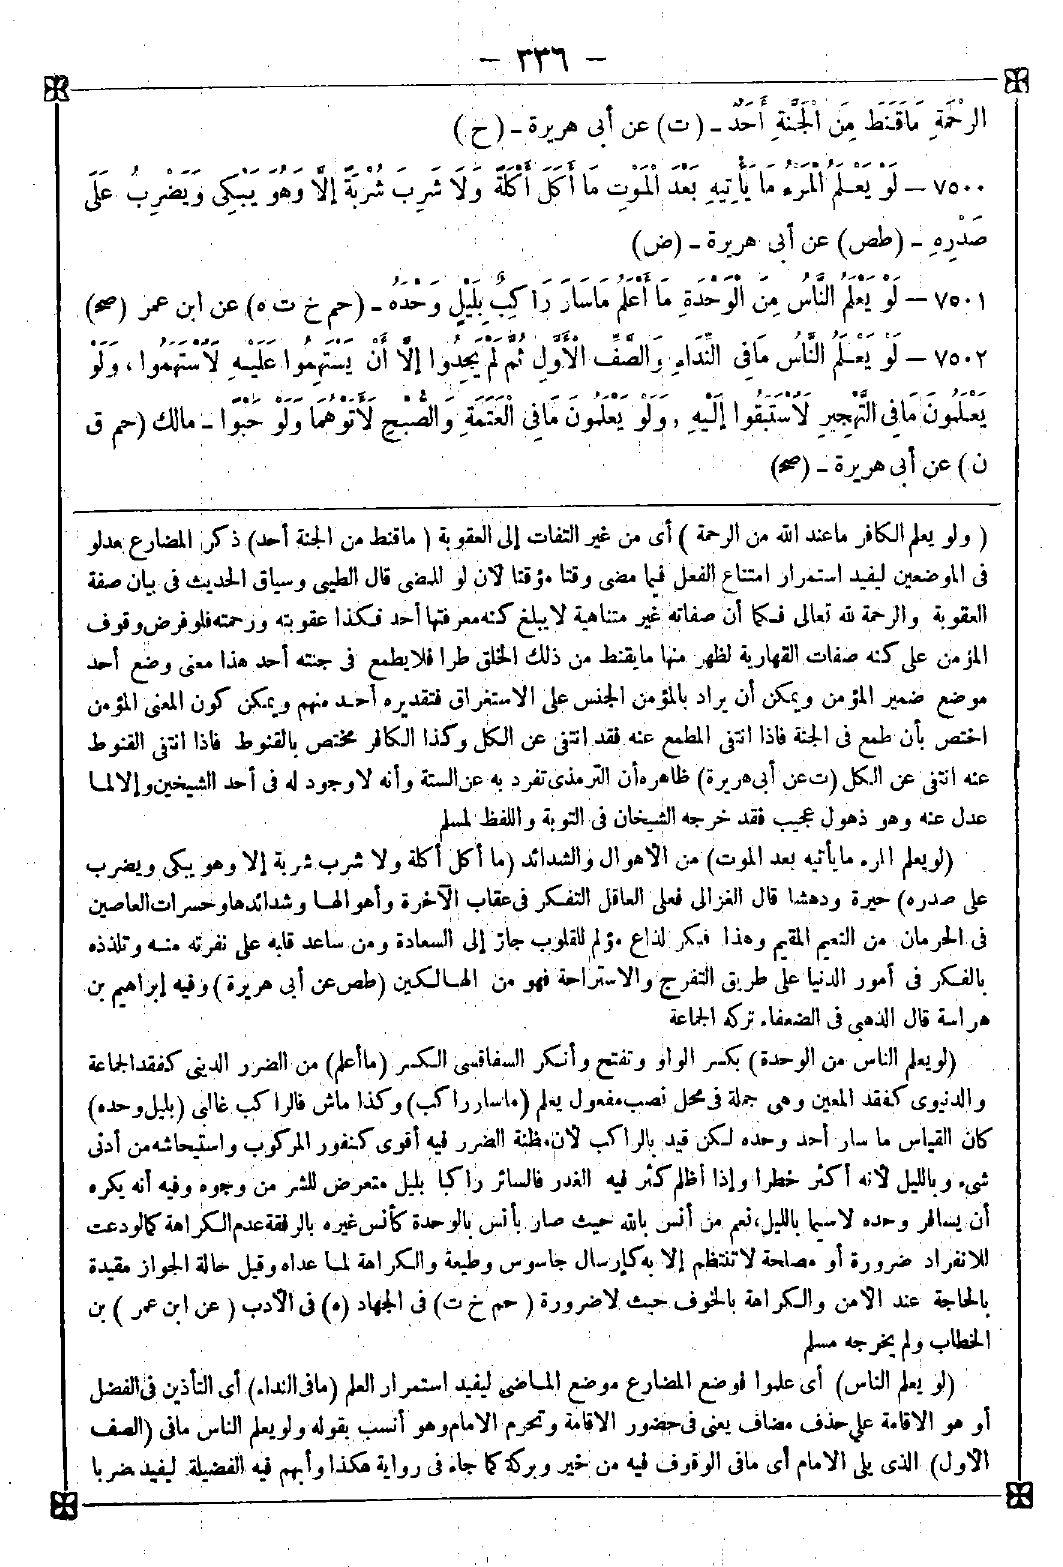 - ٣٣٦ -
الرَّحْمَةِ مَا قَنَطَ مِنَ الْجَنَّةِ أَحَدٌ - (ت) عن أبى هريرة - (ح)
٧٥٠٠ - لَوْ يَعْلَمُ الْمَرْءُ مَا يَأْتِيهِ بَعْدَ الْمَوْتِ مَا أَكَلَ أَكْلَةً وَلَا شَرِبَ شُرْبَةً إِلَّا وَهُوَ يَبْكِى وَيَضْرِبُ عَلَى
صَدْرِهِ - (طص) عن أبى هريرة - (ض)
٧٥٠١ - لَوْ يَعْلَمُ النَّاسُ مِنَ الْوَحْدَةِ مَا أَعْلَمُ مَا سَارَ رَاكِبٌ بِلَيْلٍ وَحْدَهُ - (حم خ ت ه) عن ابن عمر (صح)
٧٥٠٢ - لَوْ يَعْلَمُ النَّاسُ مَا فِى النِّدَاءِ وَالصَّفِّ الْأَوَّلِ ثُمَّ لَمْ يَجِدُوا إِلَّا أَنْ يَسْتَهِمُوا عَلَيْهِ لَاسْتَهَمُوا ، وَلَوْ
يَعْلَمُونَ مَا فِى التَّهْجِيرِ لَاسْتَبَقُوا إِلَيْهِ ، وَلَوْ يَعْلَمُونَ مَا فِى الْعَتَمَةِ وَالصُّبْحِ لَأَتَوْهُمَا وَلَوْ حَبْوًا - مالك (حم ق
ن) عن أبى هريرة - (صح)
( ولو يعلم الكافر ما عند الله من الرحمة ) أى من غير التفات إلى العقوبة ( ما قنط من الجنة أحد) ذكر المضارع بعد لو
فى الموضعين ليفيد استمرار امتناع الفعل فيما مضى وقتا مؤقتا لأن لو للمضى قال الطيبى وسياق الحديث فى بيان صفة
العقوبة والرحمة لله تعالى فكما أن صفاته غير متناهية لا يبلغ كنه معرفتها أحد فكذا عقوبته ورحمته فلو فرض وقوف
المؤمن على كنه صفات القهارية لظهر منها ما يقنط من ذلك الخلق طرا فلا يطمع فى جنته أحد هذا معنى وضع أحد
موضع ضمير المؤمن ويمكن أن يراد بالمؤمن الجنس على الاستغراق فتقديره أحد منهم ويمكن كون المعنى المؤمن
اختص بأن طمع فى الجنة فاذا انتفى المطمع عنه فقد انتفى عن الكل وكذا الكافر مختص بالقنوط فاذا انتفى القنوط
عنه انتفى عن الكل (ت عن أبى هريرة) ظاهره أن الترمذى تفرد به عن الستة وأنه لا وجود له فى أحد الشيخين وإلا لما
عدل عنه وهو ذهول عجيب فقد خرجه الشيخان فى التوبة واللفظ لمسلم
(لو يعلم المرء ما يأتيه بعد الموت) من الأهوال والشدائد (ما أكل أكلة ولا شرب شربة إلا وهو يبكى ويضرب
على صدره) حيرة ودهشا قال الغزالى فعلى العاقل التفكر فى عقاب الآخرة وأهوالها وشدائدها وحسرات العاصين
فى الحرمان من النعيم المقيم وهذا فكر لذاع مؤلم للقلوب جاز إلى السعادة ومن ساعد قلبه على نفرته منه وتلذذه
بالفكر فى أمور الدنيا على طريق التفرج والاستراحة فهو من الهالكين (طص عن أبى هريرة) وفيه إبراهيم بن
هراسة قال الذهبى فى الضعفاء تركه الجماعة
(لو يعلم الناس من الوحدة) بكسر الواو وتفتح وأنكر السفاقسى الكسر (ما أعلم) من الضرر الدينى كفقد الجماعة
والدنيوى كفقد المعين وهى جملة فى محل نصب مفعول يعلم (ما سار راكب) وكذا ماش فالراكب غالبى (بليل وحده)
كان القياس ما سار أحد وحده لكن قيد بالراكب لأن مظنة الضرر فيه أقوى كنفور المركوب واستيحاشه من أدنى
شىء وبالليل لأنه أكثر خطرا وإذا أظلم كثر فيه الغدر فالسائر راكبا بليل متعرض للشر من وجوه وفيه أنه يكره
أن يسافر وحده لا سيما بالليل، نعم من أنس بالله حيث صار يأنس بالوحدة كأنس غيره بالرفقة عدم الكراهة كما لو دعت
للانفراد ضرورة أو مصلحة لا تنتظم إلا به كإرسال جاسوس وطيعة والكراهة لما عداه وقيل حالة الجواز مقيدة
بالحاجة عند الأمن والكراهة بالخوف حيث لا ضرورة ( حم خ ت) فى الجهاد (ه) فى الأدب ( عن ابن عمر ) بن
الخطاب ولم يخرجه مسلم
(لو يعلم الناس) أى علموا فوضع المضارع موضع الماضى ليفيد استمرار العلم (ما فى النداء) أى التأذين فى الفضل
أو هو الاقامة على حذف مضاف يعنى فى حضور الاقامة وتحرم الامام وهو أنسب بقوله ولو يعلم الناس ما فى (الصف
الأول) الذى يلى الامام أى ما فى الوقوف فيه من خير وبركة كما جاء فى رواية هكذا وأبهم فيه الفضيلة ليفيد ضربا